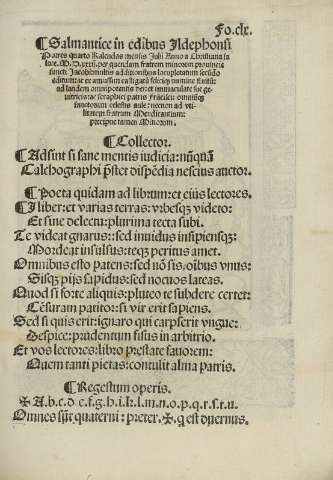 Fo.clx.
¶Salmantice in edibus Ildephonsi
Porres quarto Kalendas mensis Julij Anno a Christiana sa
lute. M.D.xxij. per quendam fratrem minorem prouincie
sancti Jacobi multis additionibus locupletatum secũdo
laudem omnipotentis dei: et immaculate sue ge
nitricis: ac seraphici patris Frãcisci: omniũq̃
sanctorum celestis aule: necnon ad vti
litatem fratrum Mendicantium:
precipue tamen Minorum.
¶Collector.
¶Adsint si sane mentis iudicia: nũquã
Calchographi p̃stet dispẽdia nescius auctor.
¶Poeta quidam ad librum: et eius lectores.
¶I liber: et varias terras: vrbesq̃ videto:
Et sine delectu: plurima tecta subi.
Te videat gnarus: sed inuidus insipiensq̃:
Mordeat insulsus: teq̃ peritus amet.
Omnibus esto patens: sed nõ sis, oĩbus vnus:
Sisq̃ pijs sapidus: sed nocuos lateas.
Quod si forte aliquis: pluteo te subdere certet:
Cẽsuram patitor: si vir erit sapiens.
Sed si quis erit: ignaro qui carpserit vngue:
Despice: prudentum fisus in arbitrio.
Et vos lectores: libro prestate fauorem:
Quem tanti pietas: contulit alma patris.
¶Regestum operis.
✠ A.b.c.d.e.f.g.h.i.k.l.m.n.o.p.q.r.s.t.u.
Omnes sũt quaterni: preter. ✠. q est duernus.